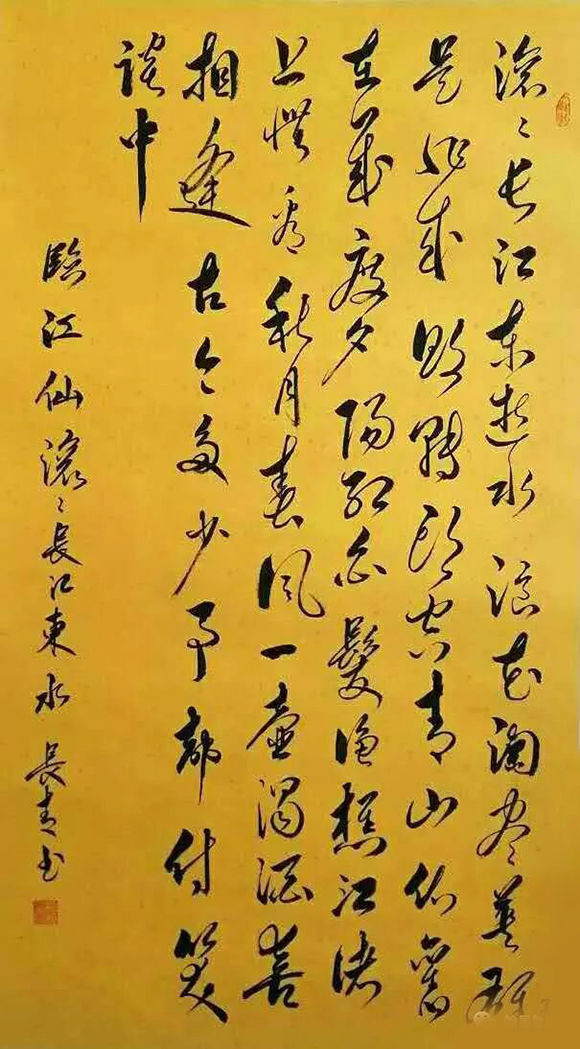 滚々长江东逝水浪花淘尽英雄
是非成败转头空青山依舊
在幾度夕阳红白髮渔樵江渚
上惯看秋月春风一壶浊酒喜
相逢古今多少事都付笑
谈中
臨江仙滚々長江東水 長青书